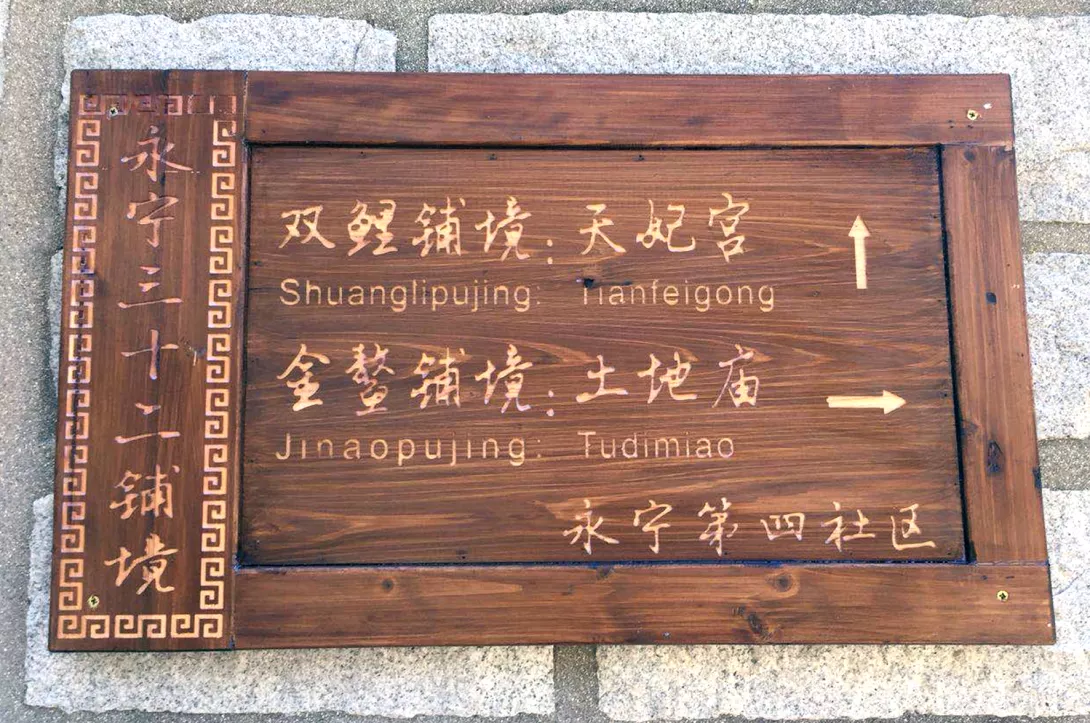 永宁三十二铺境
双鲤铺境：天妃宫
Shuanglipujing: Tianfeigong
金鳌铺境：土地庙
Jinaopujing: Tudimiao
永宁第四社区